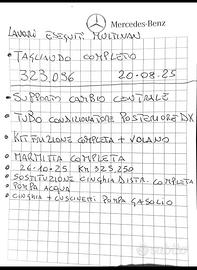 Mercedes-Benz
LAVORI ESEGUITI MULTIVAN
• TAGLIANDO COMPLETO
323,096 20-08-25
• SUPPORTO CAMBIO CENTRALE
• TUBO CONDIZIONATORE POSTERIORE DX
• KIT FRIZIONE COMPLETA + VOLANO
• MARMITTA COMPLETA
• 26-10-25 KM 325,250
• SOSTITUZIONE CINGHIA DISTR. COMPLETA
• POMPA ACQUA
• CINGHIA + CUSCINETTI POMPA GASOLIO
subito